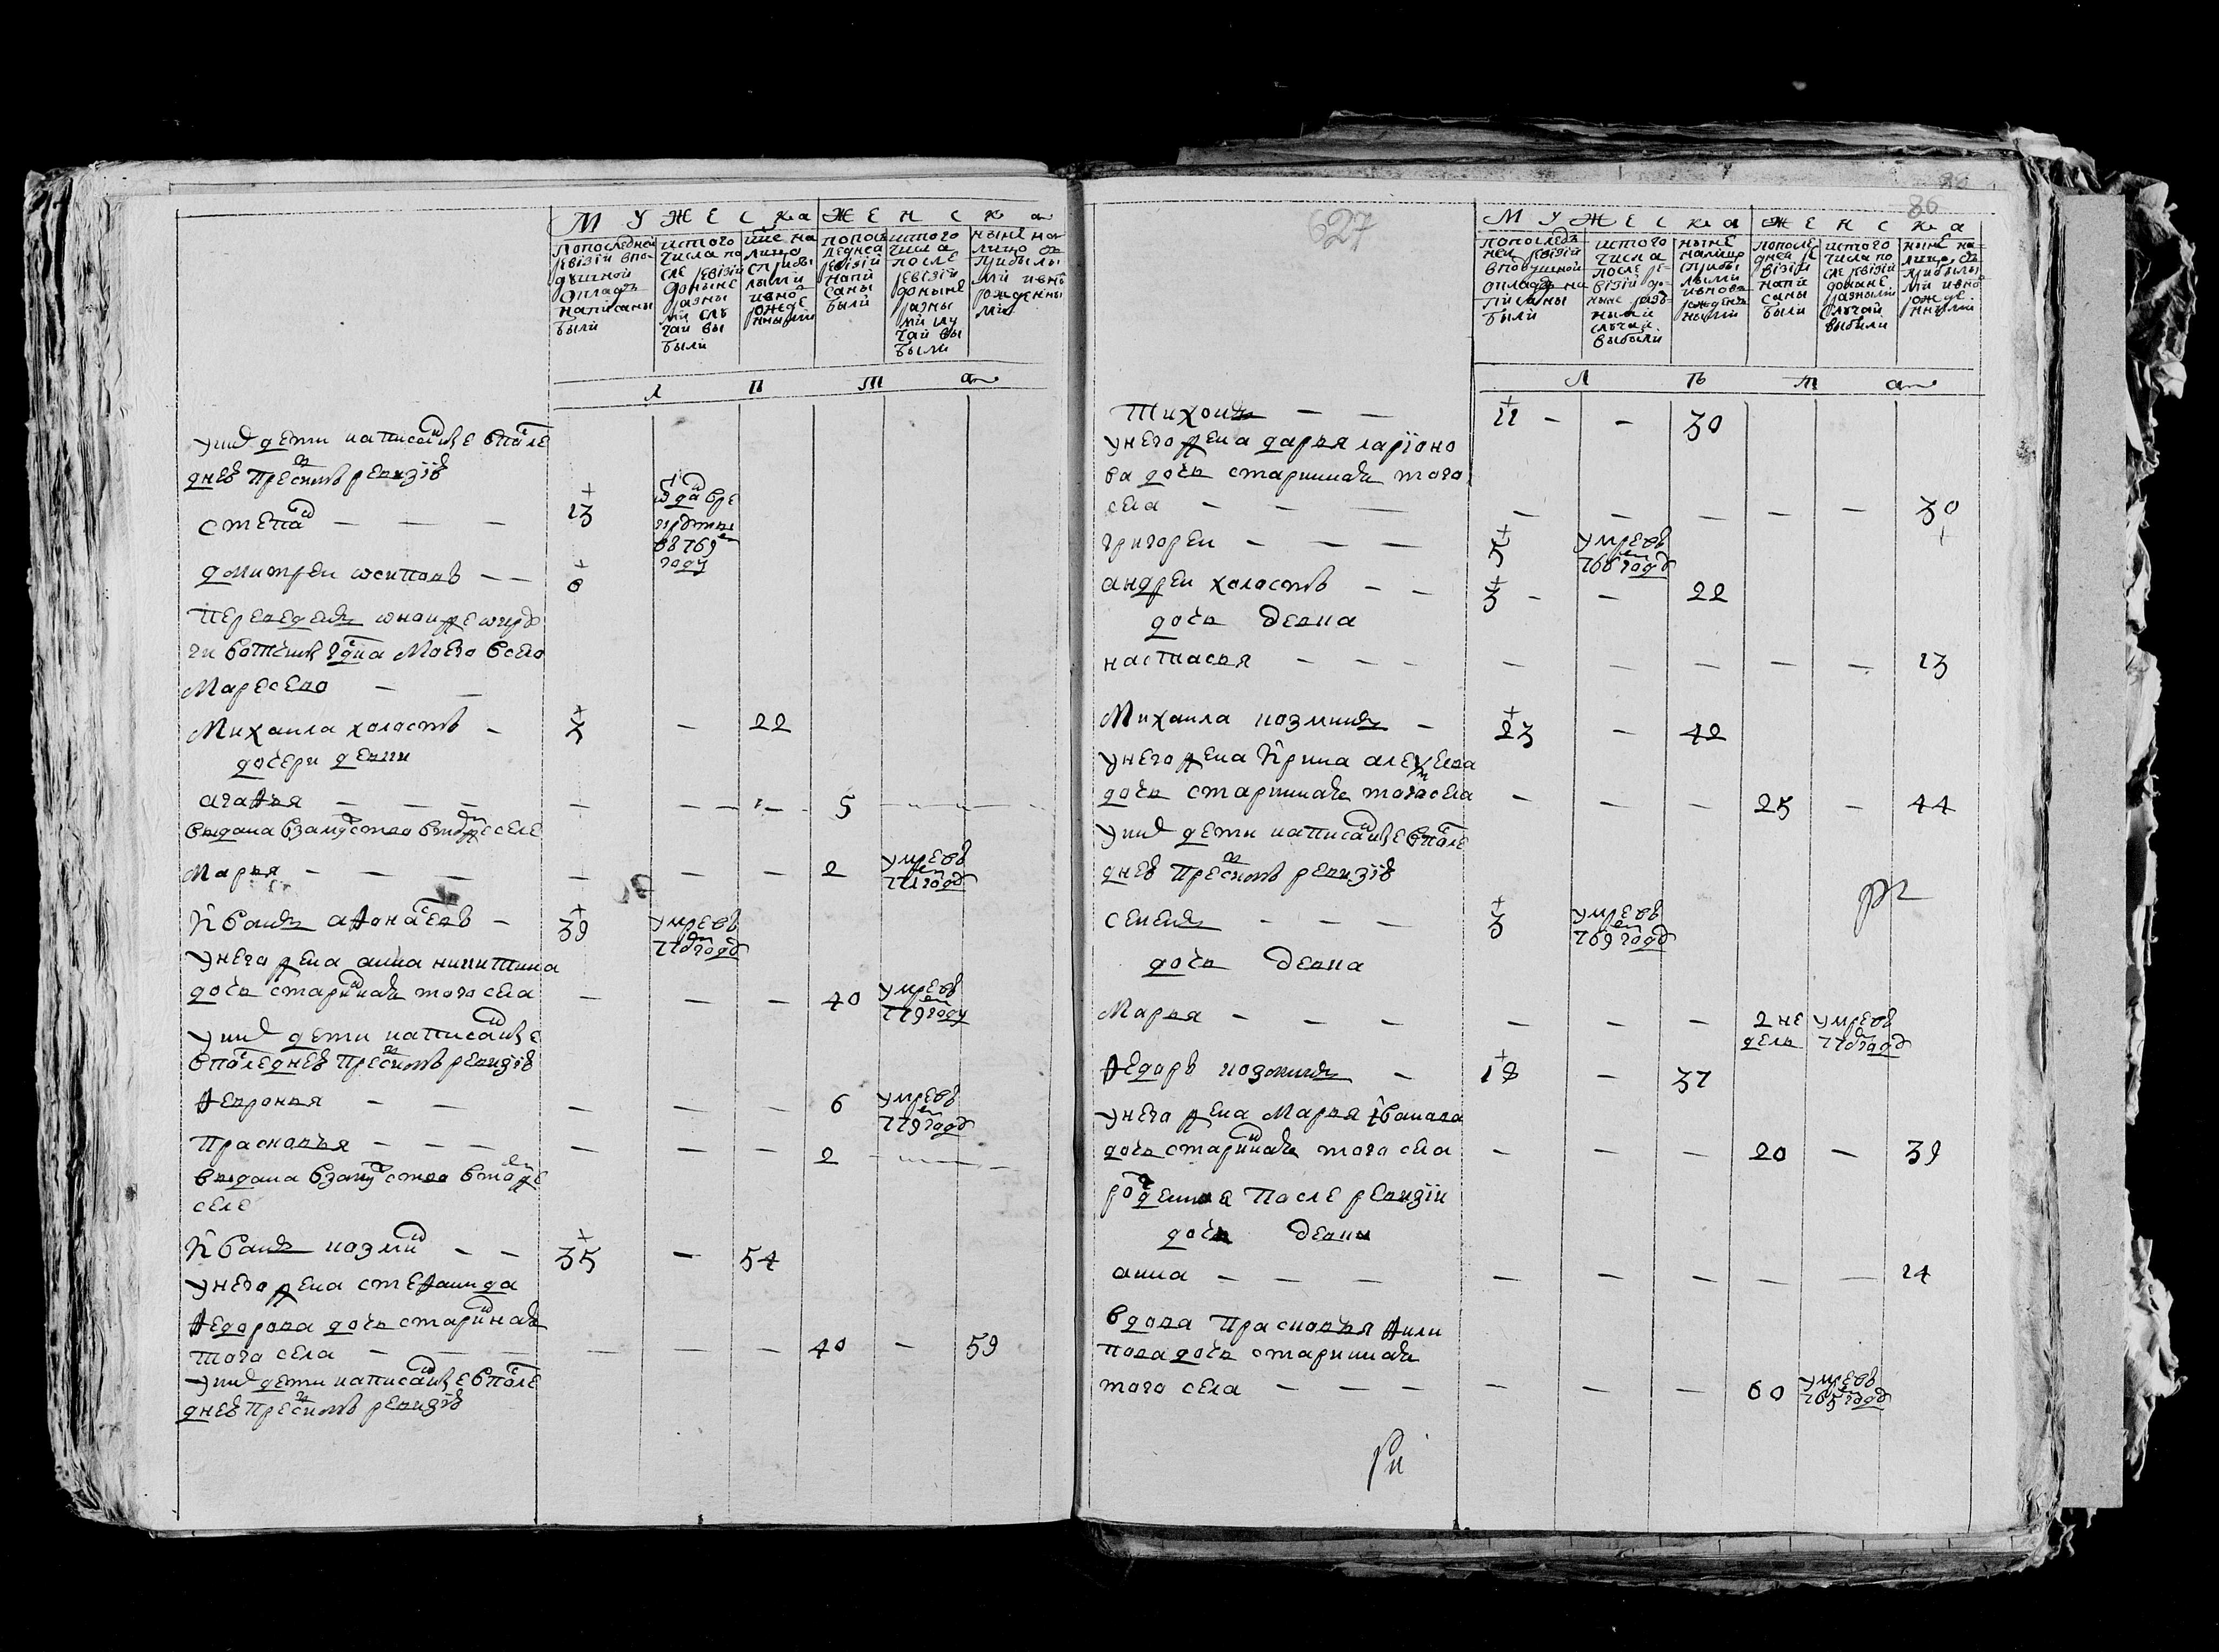 МУЖЕСКА ЖЕНСКА
по последней ревизии в подушной оплад написаны были
ис того числа после ревизии до ныне разными случаи выбыли
ныне на лицо с прибылыми и вновь рожденными
по последней ревизии написаны были
ис того числа после ревизии до ныне разными случаи выбыли
ныне на лицо с прибылыми и вновь рожденными
лѣта
у них дети написанные в после
дней пред сим ревизии
степан — — — 13 отдан в рекруты в 769м году
дмитреи осипов — — 6
переведен оной же
вотчины г̃дна моего в село
Маресево — —
Михаила холост — 3 — 22
дочери девки
агафья — — — — — — 5 — —
выдана взамужство в том же селе
Марья — — — — — — 2 умре в 771 году
Иван афонасьев — 39 умре в 770 году
у него жена анна никитина
дочь стариннаꙗ того села — — — 40 умре в 779 году
у них дети написанные
в последней пред сим ревизии
февронья — — — — — 6 умре в 779 году
прасковья — — — — — — 2 — —
выдана взамужство в том же
селе
Иван козмин — — 35 — 54
у него жена стефанида
федорова дочь стариннаꙗ
того села — — — — — — 40 — 59
у них дети написанные в после
дней пред сим ревизии
627
86
МУЖЕСКА ЖЕНСКА
по последней ревизии в подушной оплад написаны были
ис того числа после ревизии до ныне разными случаи выбыли
ныне на лицо с прибылыми и вновь рожденными
по последней ревизии написаны были
ис того числа после ревизии до ныне разными случаи выбыли
ныне на лицо с прибылыми и вновь рожденными
лѣта
тихон — — 11 — — 30
у него жена дарья ларионо
ва дочь стариннаꙗ того
села — — — — — — — — 30
григореи — — — 5 умре в 766 году
андреи холост — — 3 — — 22
дочь девка
настасья — — — — — — — — 13
Михаила козмин — 23 — 42
у него жена Ирина алексеева
дочь стариннаꙗ того села — — — 25 — 44
у них дети написанные в после
дней пред сим ревизии
семен — — — 3 умре в 769 году
дочь девка
Марья — — — — — — 2 недель умре в 770 году
федор козмин — 18 — 37
у него жена Марья Иванова
дочь стариннаꙗ того села — — — 20 — 39
рожденная после ревизии
дочь девка
анна — — — — — — — — 14
вдова прасковья фили
пова дочь стариннаꙗ
того села — — — — — — 60 умре в 765 году